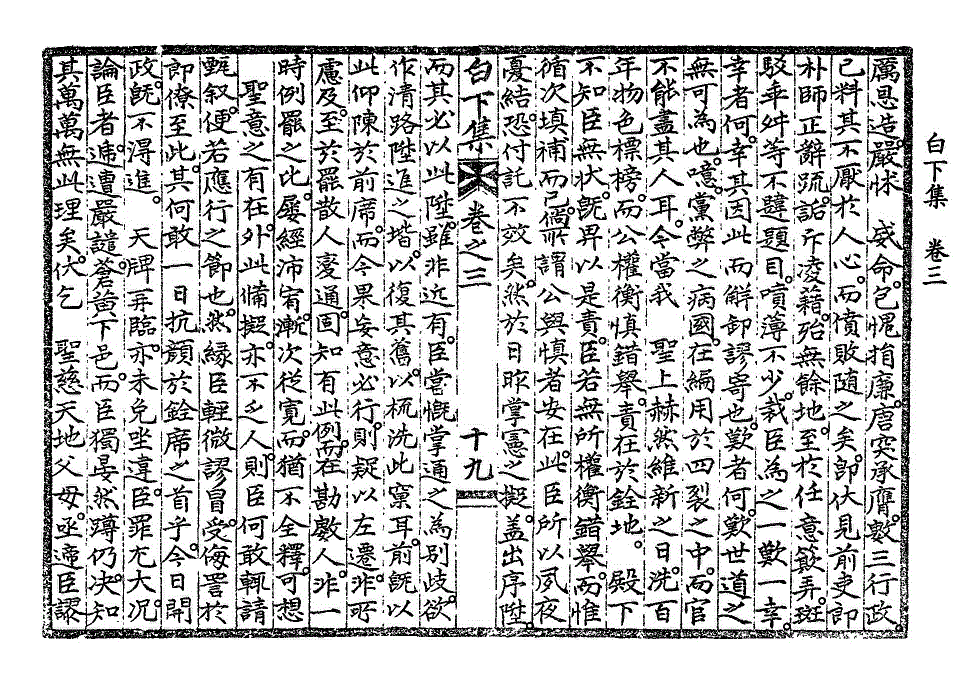 白下集 卷三
厲恩造。嚴怵 威命。包愧指廉。唐突承膺。數三行政。
已料其不厭於人心。而僨敗隨之矣。卽伏見前吏郞
朴師正辭疏。詬斥凌藉。殆無餘地。至於任意簸弄。斑
駁乖舛等不韙題目。噴薄不少。裁臣爲之一歎一幸。
幸者何。幸其因此而解卸謬寄也。歎者何。歎世道之
無可爲也。噫。黨弊之病國。在編用於四裂之中。而官
不能盡其人耳。今當我 聖上赫然維新之日。洗百
年物色標榜。而公權衡愼錯擧。責在於銓地。 殿下
不知臣無狀。旣畀以是責。臣若無所權衡錯擧。而惟
循次塡補而已。倘所謂公與愼者安在。此臣所以夙夜
憂結。恐付託不效矣。然於日昨掌憲之擬。盖出序陞。
白下集 卷之三 十九
而其必以此陞。雖非近有。臣嘗慨掌通之爲別歧。欲
作清路陞進之堦。以復其舊。以梳洗此窠耳。前旣以
此仰陳於前席。而今果妄意必行。則疑以左遷。非所
慮及。至於罷散人戞通。固知有此例。而在勘處人。非一
時例罷之比。屢經沛宥。漸次從寬。而猶不全釋。可想
聖意之有在。外此備擬。亦不乏人。則臣何敢輒請
甄叙。便若應行之節也。然緣臣輕微謬冒。受侮詈於
郞僚至此。其何敢一日抗顔於銓席之首乎。今日開
政。旣不得進。 天牌再臨。亦未免坐違。臣罪尤大。况
論臣者。遄遭嚴譴。蒼黃下邑。而臣獨晏然蹲仍。决知
其萬萬無此理矣。伏乞 聖慈天地父母亟遞臣謬